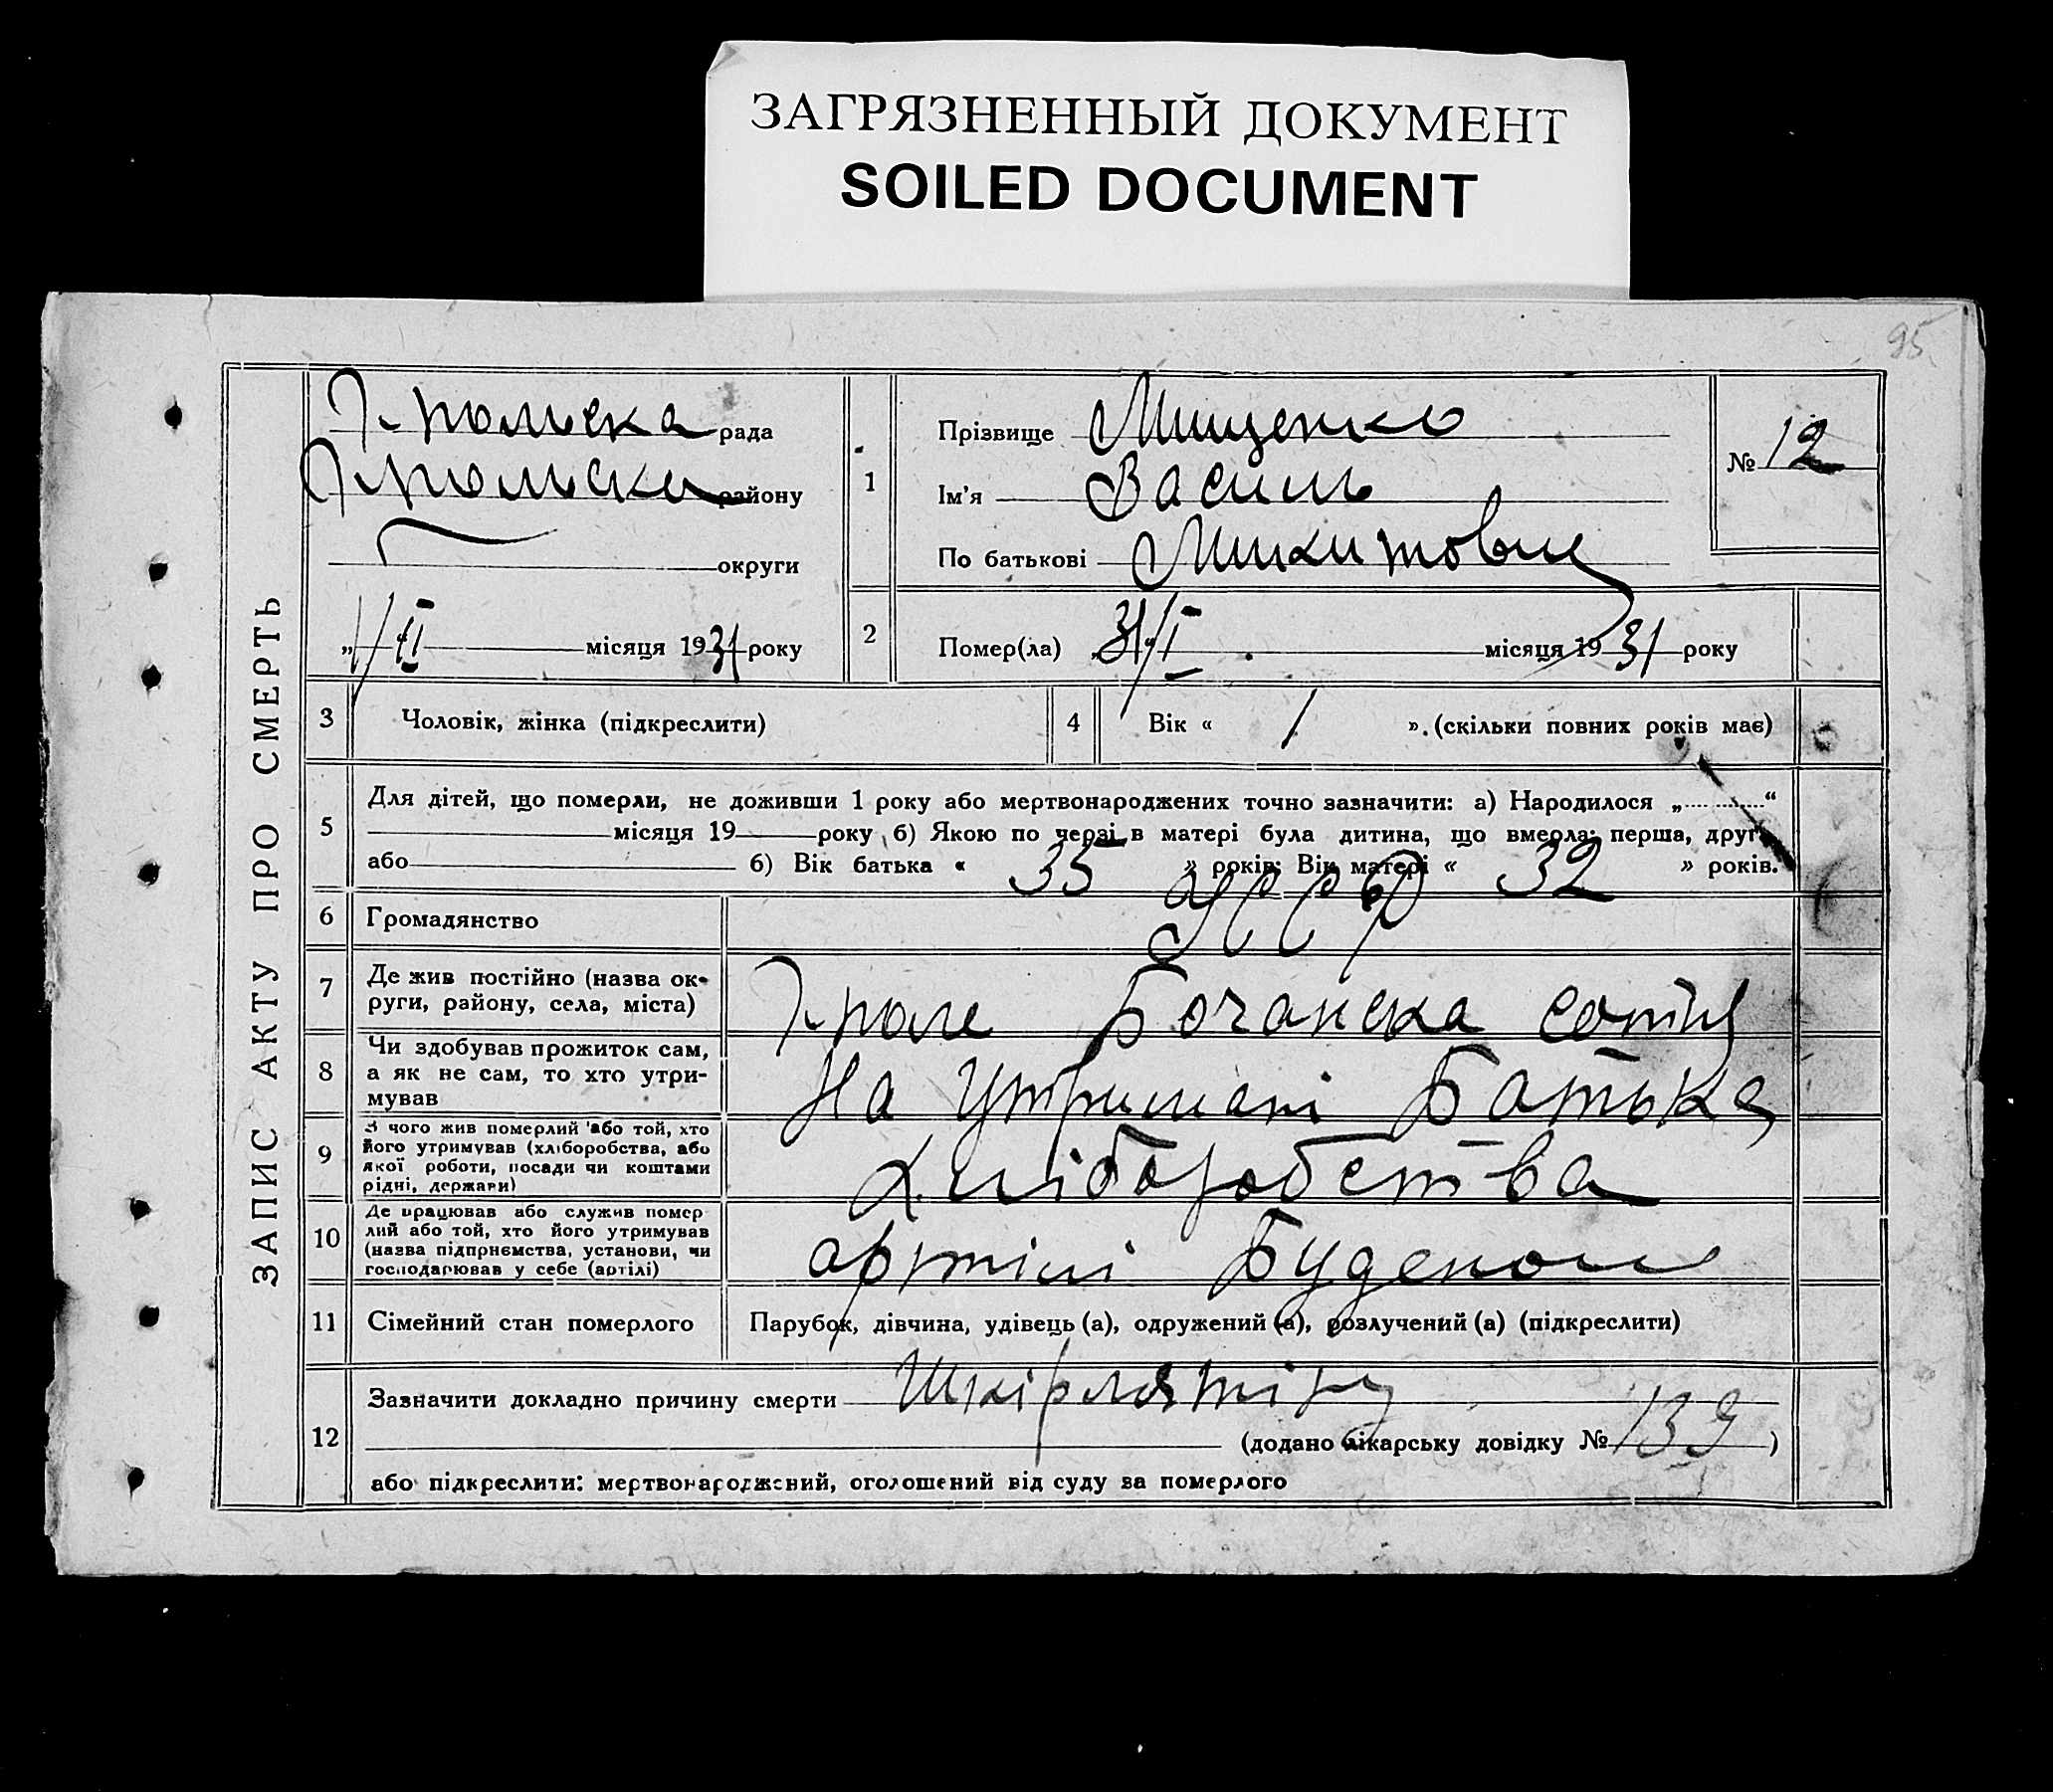 ЗАГРЯЗНЕННЫЙ ДОКУМЕНТ
SOILED DOCUMENT
95
ЗАПИС АКТУ ПРО СМЕРТЬ
рада
району
округи
„1/II місяця 1931 року
1
Прізвище Мищенко
Ім'я Василь
По батькові Микитович
№ 12
2
Помер(ла) 31/I місяця 1931 року
3 Чоловік, жінка (підкреслити)
4 Вік « 1 ». (скільки повних років має)
5
Для дітей, що померли, не доживши 1 року або мертвонароджених точно зазначити: а) Народилося „..........“
місяця 19 року б) Якою по черзі в матері була дитина, що вмерла: перша, друга
або б) Вік батька « 35 » років; Вік матері « 32 » років.
6 Громадянство УССР
7
Де жив постійно (назва ок-
руги, району, села, міста)
Бочанска сотня
8
Чи здобував прожиток сам,
а як не сам, то хто утри-
мував
На утримані Батька
9
З чого жив померлий або той, хто
його утримував (хліборобства, або
якої роботи, посади чи коштами
рідні, держави)
Хліборобства
10
Де працював або служив помер
лий або той, хто його утримував
(назва підприємства, установи, чи
господарював у себе (артілі)
артілі
11 Сімейний стан померлого
Парубок, дівчина, удівець (а), одружений (а), розлучений (а) (підкреслити)
12
Зазначити докладно причину смерти
(додано лікарську довідку № 139)
або підкреслити: мертвонароджений, оголошений від суду за померлого